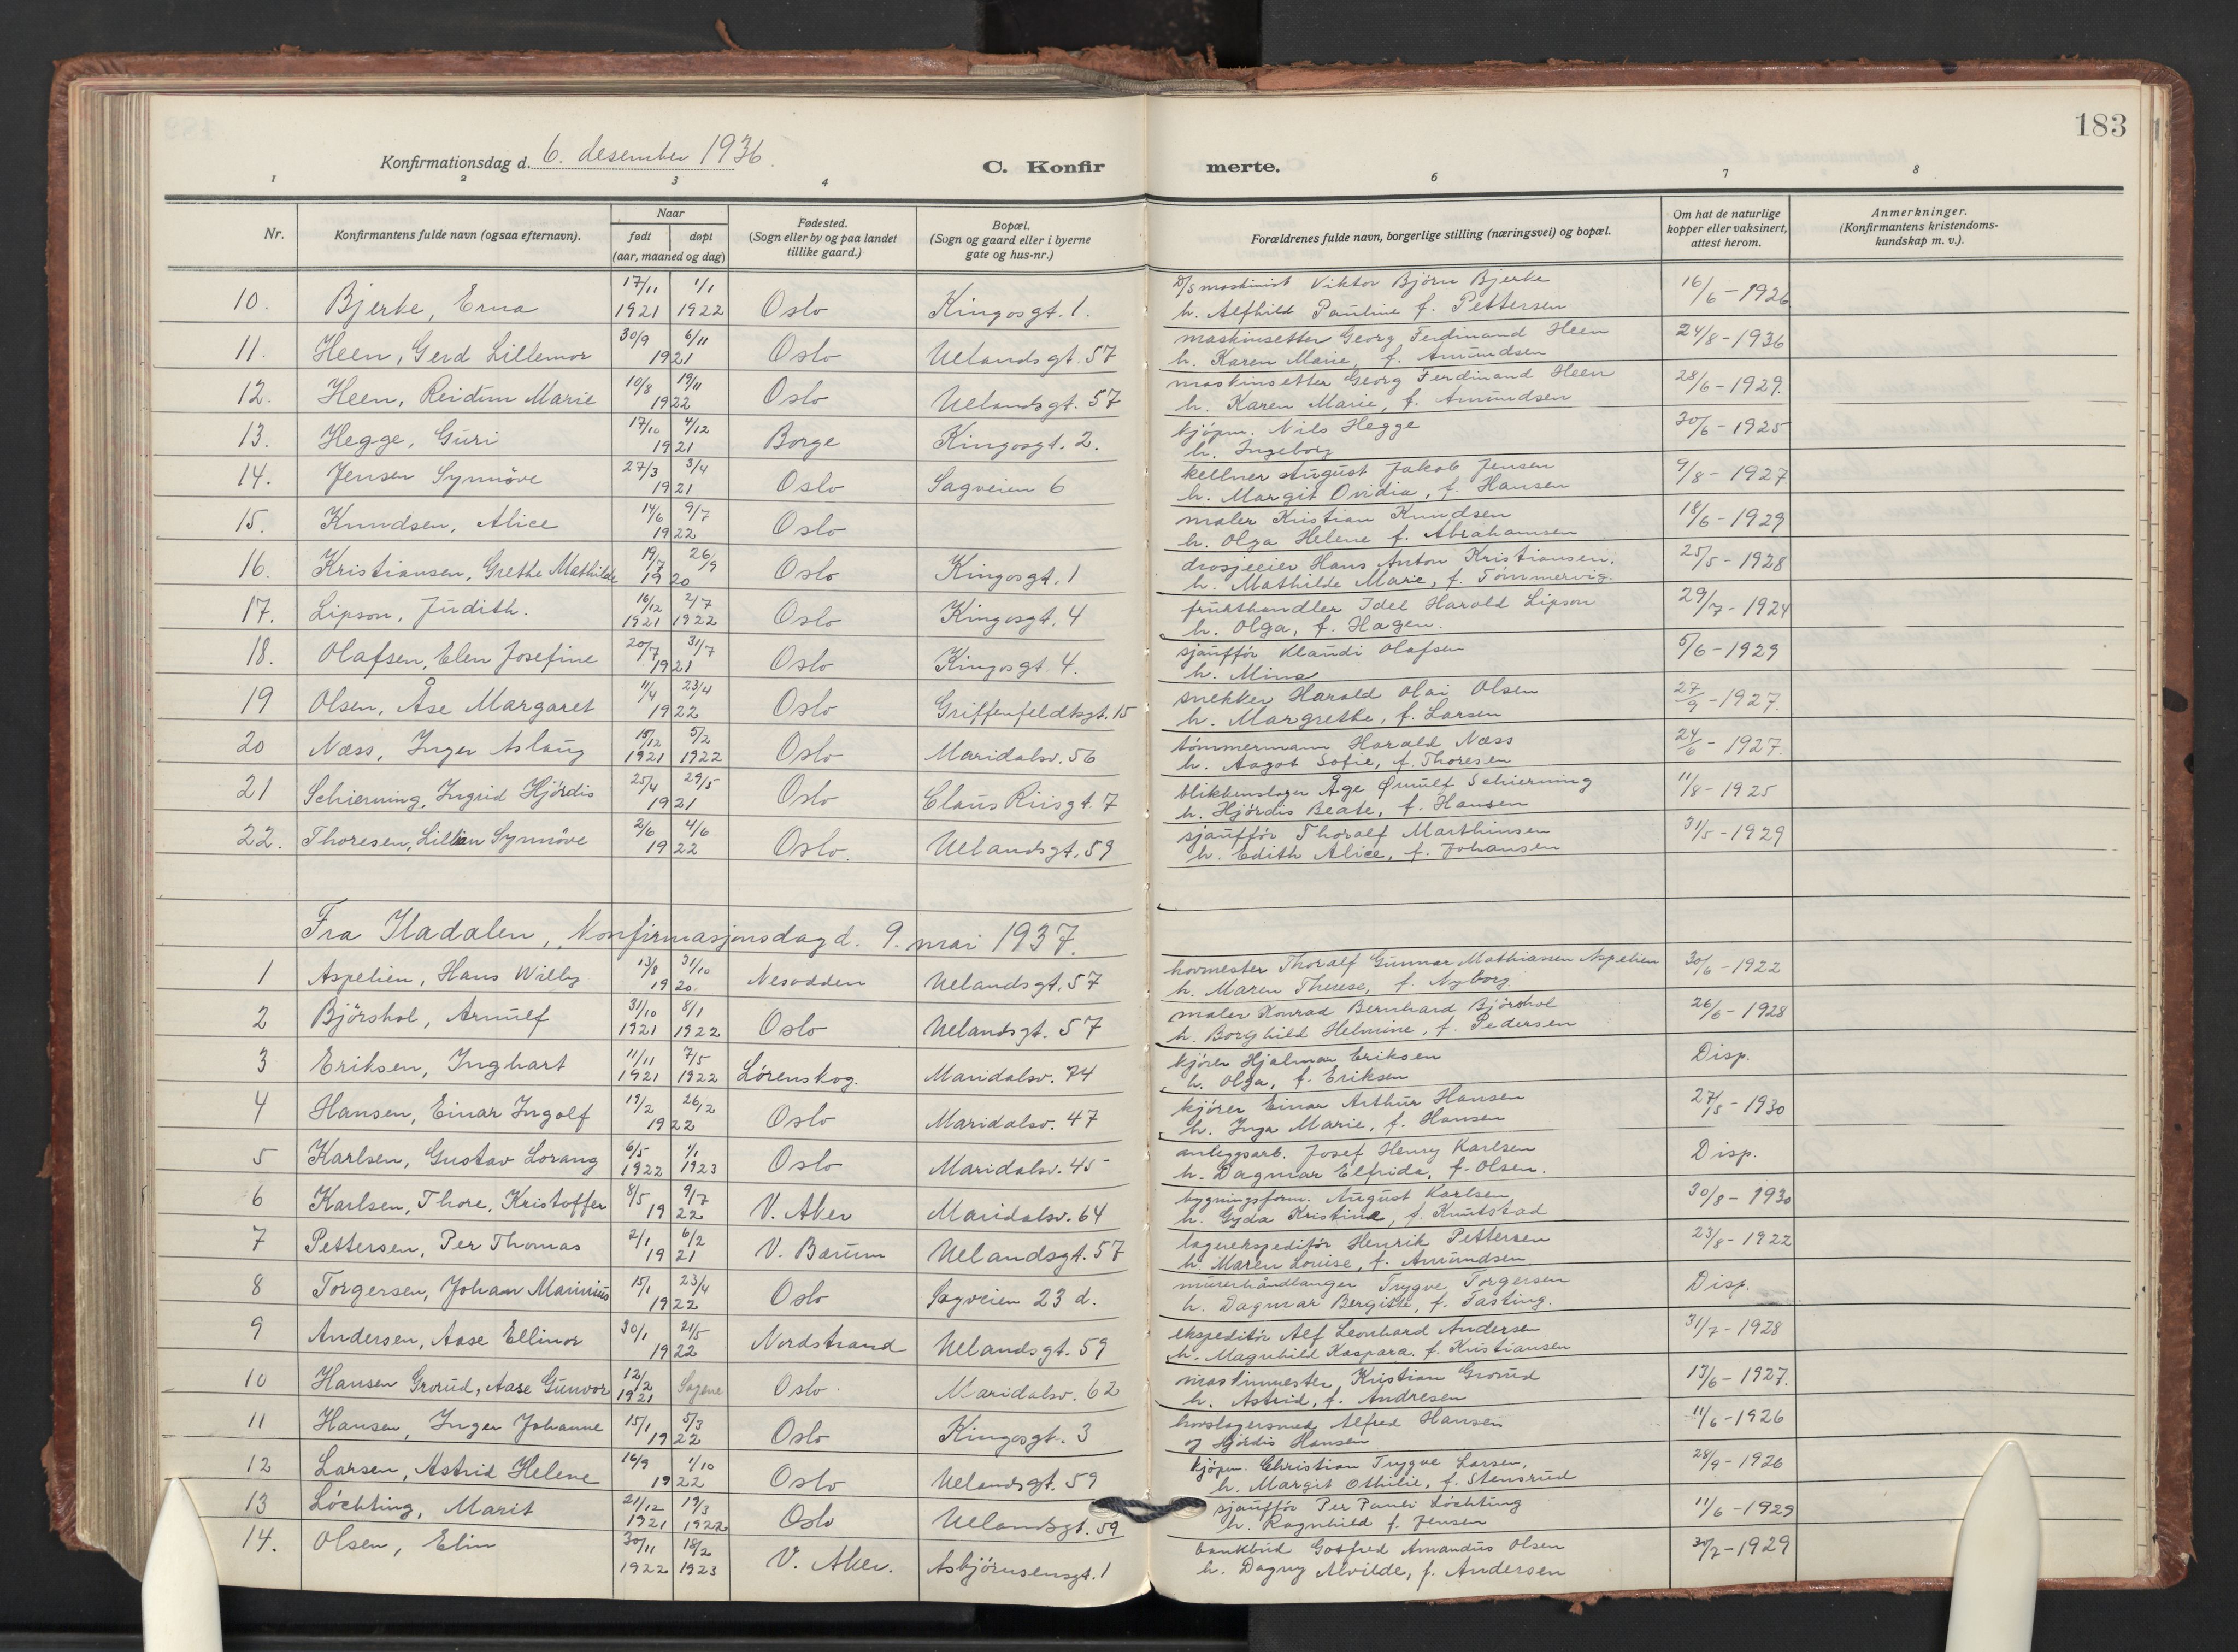 183
Konfirmationsdag d. 6. desember 1936.
C. Konfirmerte.
1 2 3 4 6 7 8
Nr.
Konfirmantens fulde navn (ogsaa efternavn).
Naar
født døpt
(aar, maaned og dag)
Fødested.
(Sogn eller by og paa landet
tillike gaard.)
Bopæl.
(Sogn og gaard eller i byerne
gate og hus-nr.)
Forældrenes fulde navn, borgerlige stilling (næringsvei) og bopæl.
Om hat de naturlige
kopper eller vaksinert,
attest herom.
Anmerkninger.
(Konfirmantens kristendoms-
kundskap m. v.).
10. Bjerke, Erna 17/11 1921 1/1 1922 Oslo Kingosgt. 1. D/S maskinist Viktor Björn Bjerke 16/6 - 1926
h. Alfhild Pauline f. Pettersen
11. Heen, Gerd Lillemor 30/9 6/11 1921 Oslo Uelandsgt. 57 maskinsetter Georg Ferdinand Heen 24/8 - 1936
h. Karen Marie, f. Amundsen
12. Heen, Reidun Marie 10/8 19/11 1922 Oslo Uelandsgt. 57 maskinsetter Georg Ferdinand Heen 28/6 - 1929.
h. Karen Marie, f. Amundsen
13. Hegge, Guri 17/10 4/12 1921 Borge Kingosgt. 2. kjöpm. Nils Hegge 30/6 - 1925
h. Ingeborg
14. Jensen Synnöve 27/3 3/4 1921 Oslo Sagveien 6 kellner August Jakob Jensen 9/8 - 1927
h. Margit Ovidia, f. Hansen
15. Knudsen, Alice 14/6 9/7 1922 Oslo maler Kristian Knudsen 18/6 - 1929
h. Olga Helene f. Abrahamsen
16. Kristiansen, Grethe Mathilde 19/7 26/9 1920 Oslo Kingosgt. 1 drosjeeier Hans Anton Kristiansen. 25/5 - 1928
h. Mathilde Marie, f. Tömmervig.
17. Lipson, Judith. 16/12 1921 2/7 1922 Oslo Kingosgt. 4 frukthandler Idel Harald Lipson 29/7 - 1924
h. Olga, f. Hagen.
18. Olafsen, Elen Josefine 20/7 31/7 1921 Oslo Kingosgt. 4. sjaufför Klaudi Olafsen 5/6 - 1929
h. Mina
19 Olsen, Åse Margaret 11/4 23/4 1922 Oslo Griffenfeldtsgt. 15 snekker Harald Olai Olsen 27/9 - 1927.
h. Margrethe, f. Larsen
20 Næss, Inger Aslaug 15/12 1921 5/2 1922 Oslo Maridalsv. 56 tömmermann Harald Næss 24/6 - 1927.
h. Aagot Sofie, f. Thoresen
21 Schierning, Ingrid Hjördis 25/4 29/5 1921 Oslo Claus Riisgt. 7 blikkenslager Åge Ørnulf Schierning 11/8 - 1925
h. Hjördis Beate, f. Hansen
22. Thoresen, Lillian Synnöve 2/6 4/6 1922 Oslo. Uelandsgt. 59 sjaufför Thoralf Marthinsen 31/5 - 1929
h. Edith Alice, f. Johansen
Fra Iladalen, Konfirmasjonsdag d. 9. mai 1937.
1 Aspelien, Hans Willy 13/8 31/10 1920 Nesodden Uelandsgt. 57 hovmester Thoralf Gunnar Mathiassen Aspelien 30/6 - 1922
h. Maren Therese, f. Nyborg.
2 Björshol, Arnulf 31/10 1921 8/1 1922 Oslo Uelandsgt. 57 maler Konrad Bernhard Björshol 26/6 - 1928
h. Borghild Helmine, f. Pedersen
3 Eriksen, Inghart 11/11 1921 7/5 1922 Lörenskog. Maridalsv. 74 kjörer Hjalmar Eriksen Disp.
h. Olga, f. Eriksen
4 Hansen, Einar Ingolf 19/2 26/2 1922 Oslo Maridalsv. 47 kjörer Einar Arthur Hansen 27/5 - 1930
h. Inga Marie, f. Hansen
5 Karlsen, Gustav Lorang 6/5 1922 1/1 1923 Oslo Maridalsv. 45 anleggsarb. Josef Henry Karlsen Disp.
h. Dagmar Elfrida, f. Olsen.
6 Karlsen, Thore, Kristoffer 8/5 9/7 1922 V. Aker Maridalsv. 64 bygningsform. August Karlsen 30/8 - 1930
h. Gyda Kristine, f. Knutstad
7 Pettersen, Per Thomas 2/1 6/2 1921 V. Bærum Uelandsgt. 57 lagerekspeditör Henrik Pettersen 23/8 - 1922
h. Maren Louise, f. Amundsen
8 Torgersen, Johan Marinius 15/1 23/4 1922 Oslo Sagveien 23 d. murerhåndlanger Trygve Torgersen Disp.
h. Dagmar Bergitte, f. Tasting.
9 Andersen, Aase Ellinor 30/1 21/5 1922 Nordstrand Uelandsgt. 59 ekspeditör Alf Leonhard Andersen 31/7 - 1928
h. Magnhild Kaspara. f. Kristiansen
10 Hansen Grorud, Aase Gunvor 12/2 1921 Sagene Oslo Maridalsv. 62 maskinmester, Kristian Grorud 13/6 - 1927.
h. Astrid, f. Andresen
11 Hansen, Inger Johanne 15/1 5/3 1922 Oslo Kingosgt. 3 hovslagersmed Alfred Hansen 11/6 - 1926
og Hjördis Hansen
12 Larsen, Astrid Helene 16/9 1/10 1922 Oslo Uelandsgt. 59 kjöpm. Christian Trygve Larsen, 28/9 - 1926
h. Margit Othilie, f. Stensrud
13 Löchting, Marit 21/12 1921 19/3 1922 Oslo Uelandsgt. 59 sjaufför Per Pauli Löchting 11/6 - 1929
h. Ragnhild f. Jensen
14. Olsen, Elin 30/11 1922 18/2 1923 V. Aker. Asbjörnsensgt. 1 bankbud Gotfred Amandus Olsen 30/7 - 1929
h. Dagny Alvilde, f. Andersen